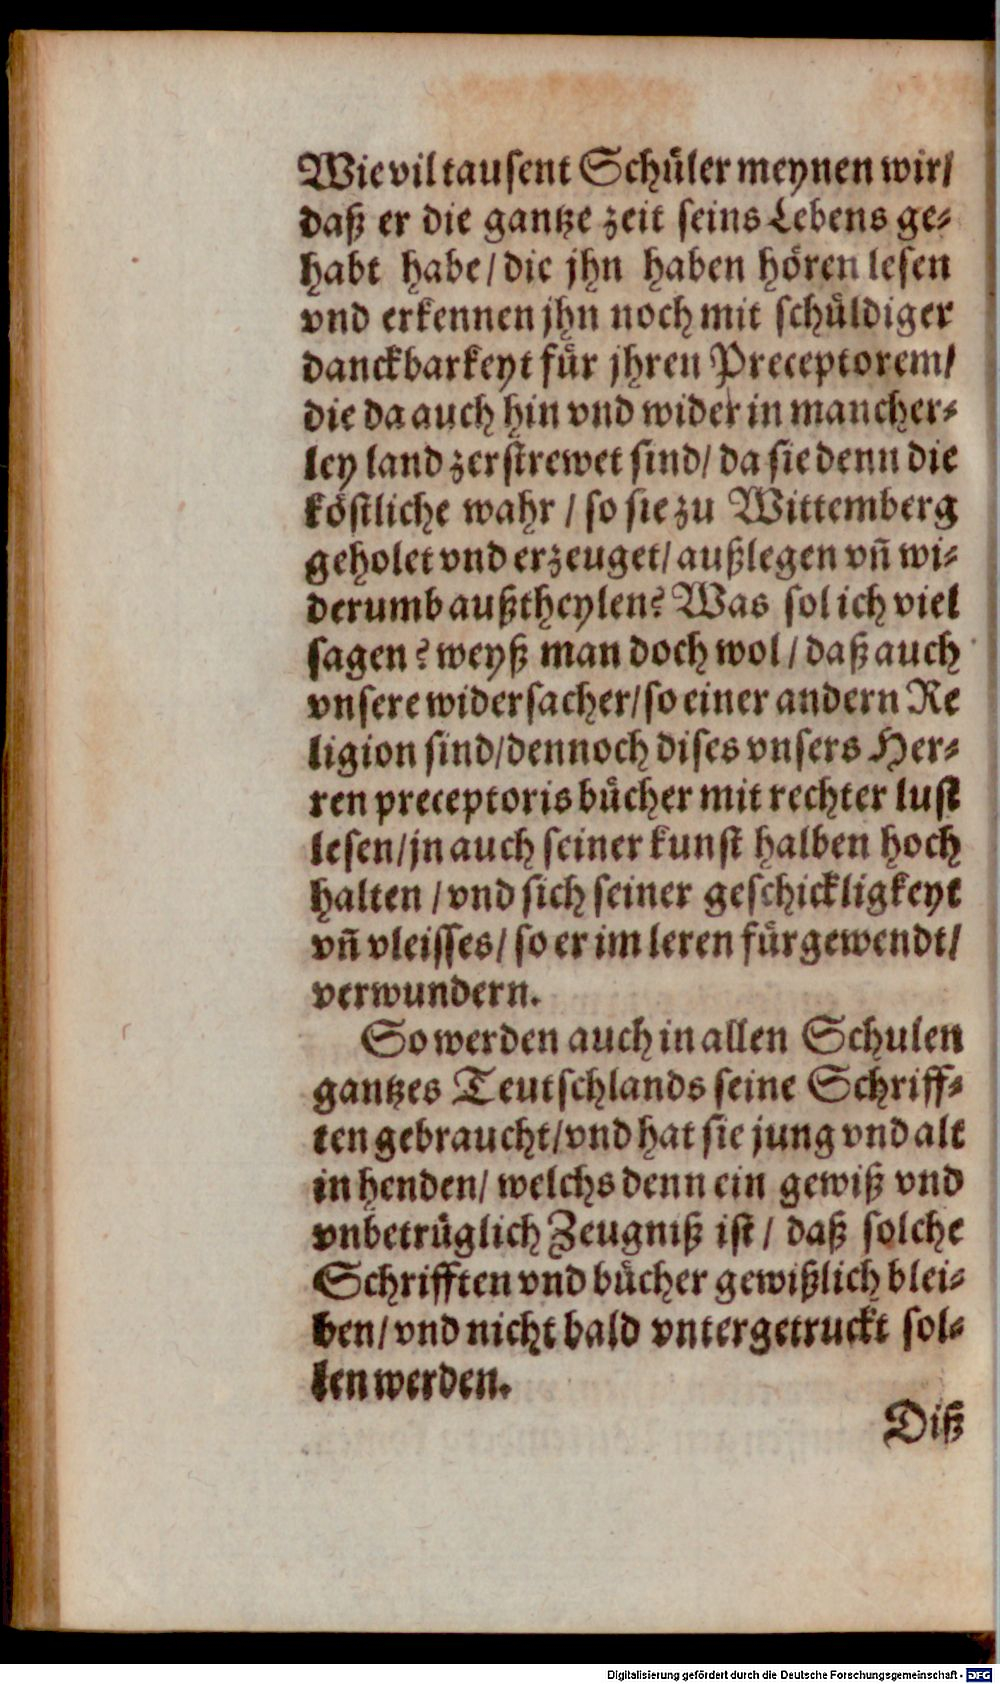 Wie vil tausent Schuͤler meynen wir/
daß er die gantze zeit seins Lebens ge-
habt habe/ die jhn haben hoͤren lesen
vnd erkennen jhn noch mit schuͤldiger
danckbarkeyt fuͤr jhren Preceptorem/
die da auch hin vnd wider in mancher-
ley land zerstrewet sind/ da sie denn die
koͤstliche wahr / so sie zu Wittemberg
geholet vnd erzeuget/ außlegen vn̄ wi-
derumb außtheylen? Was sol ich viel
sagen? weyß man doch wol / daß auch
vnsere widersacher/ so einer andern Re
ligion sind/ dennoch dises vnsers Her-
ren preceptoris buͤcher mit rechter lust
lesen/ jn auch seiner kunst halben hoch
halten / vnd sich seiner geschickligkeyt
vn̄ vleisses/ so er im leren fuͤrgewendt/
verwundern.
So werden auch in allen Schulen
gantzes Teutschlands seine Schriff-
ten gebraucht/ vnd hat sie jung vnd alt
in henden/ welchs denn ein gewiß vnd
vnbetruͤglich Zeugniß ist / daß solche
Schrifften vnd buͤcher gewißlich blei-
ben/ vnd nicht bald vntergetruckt sol-
len werden.
Diß
Digitalisierung gefördert durch die Deutsche Forschungsgemeinschaft - DFG